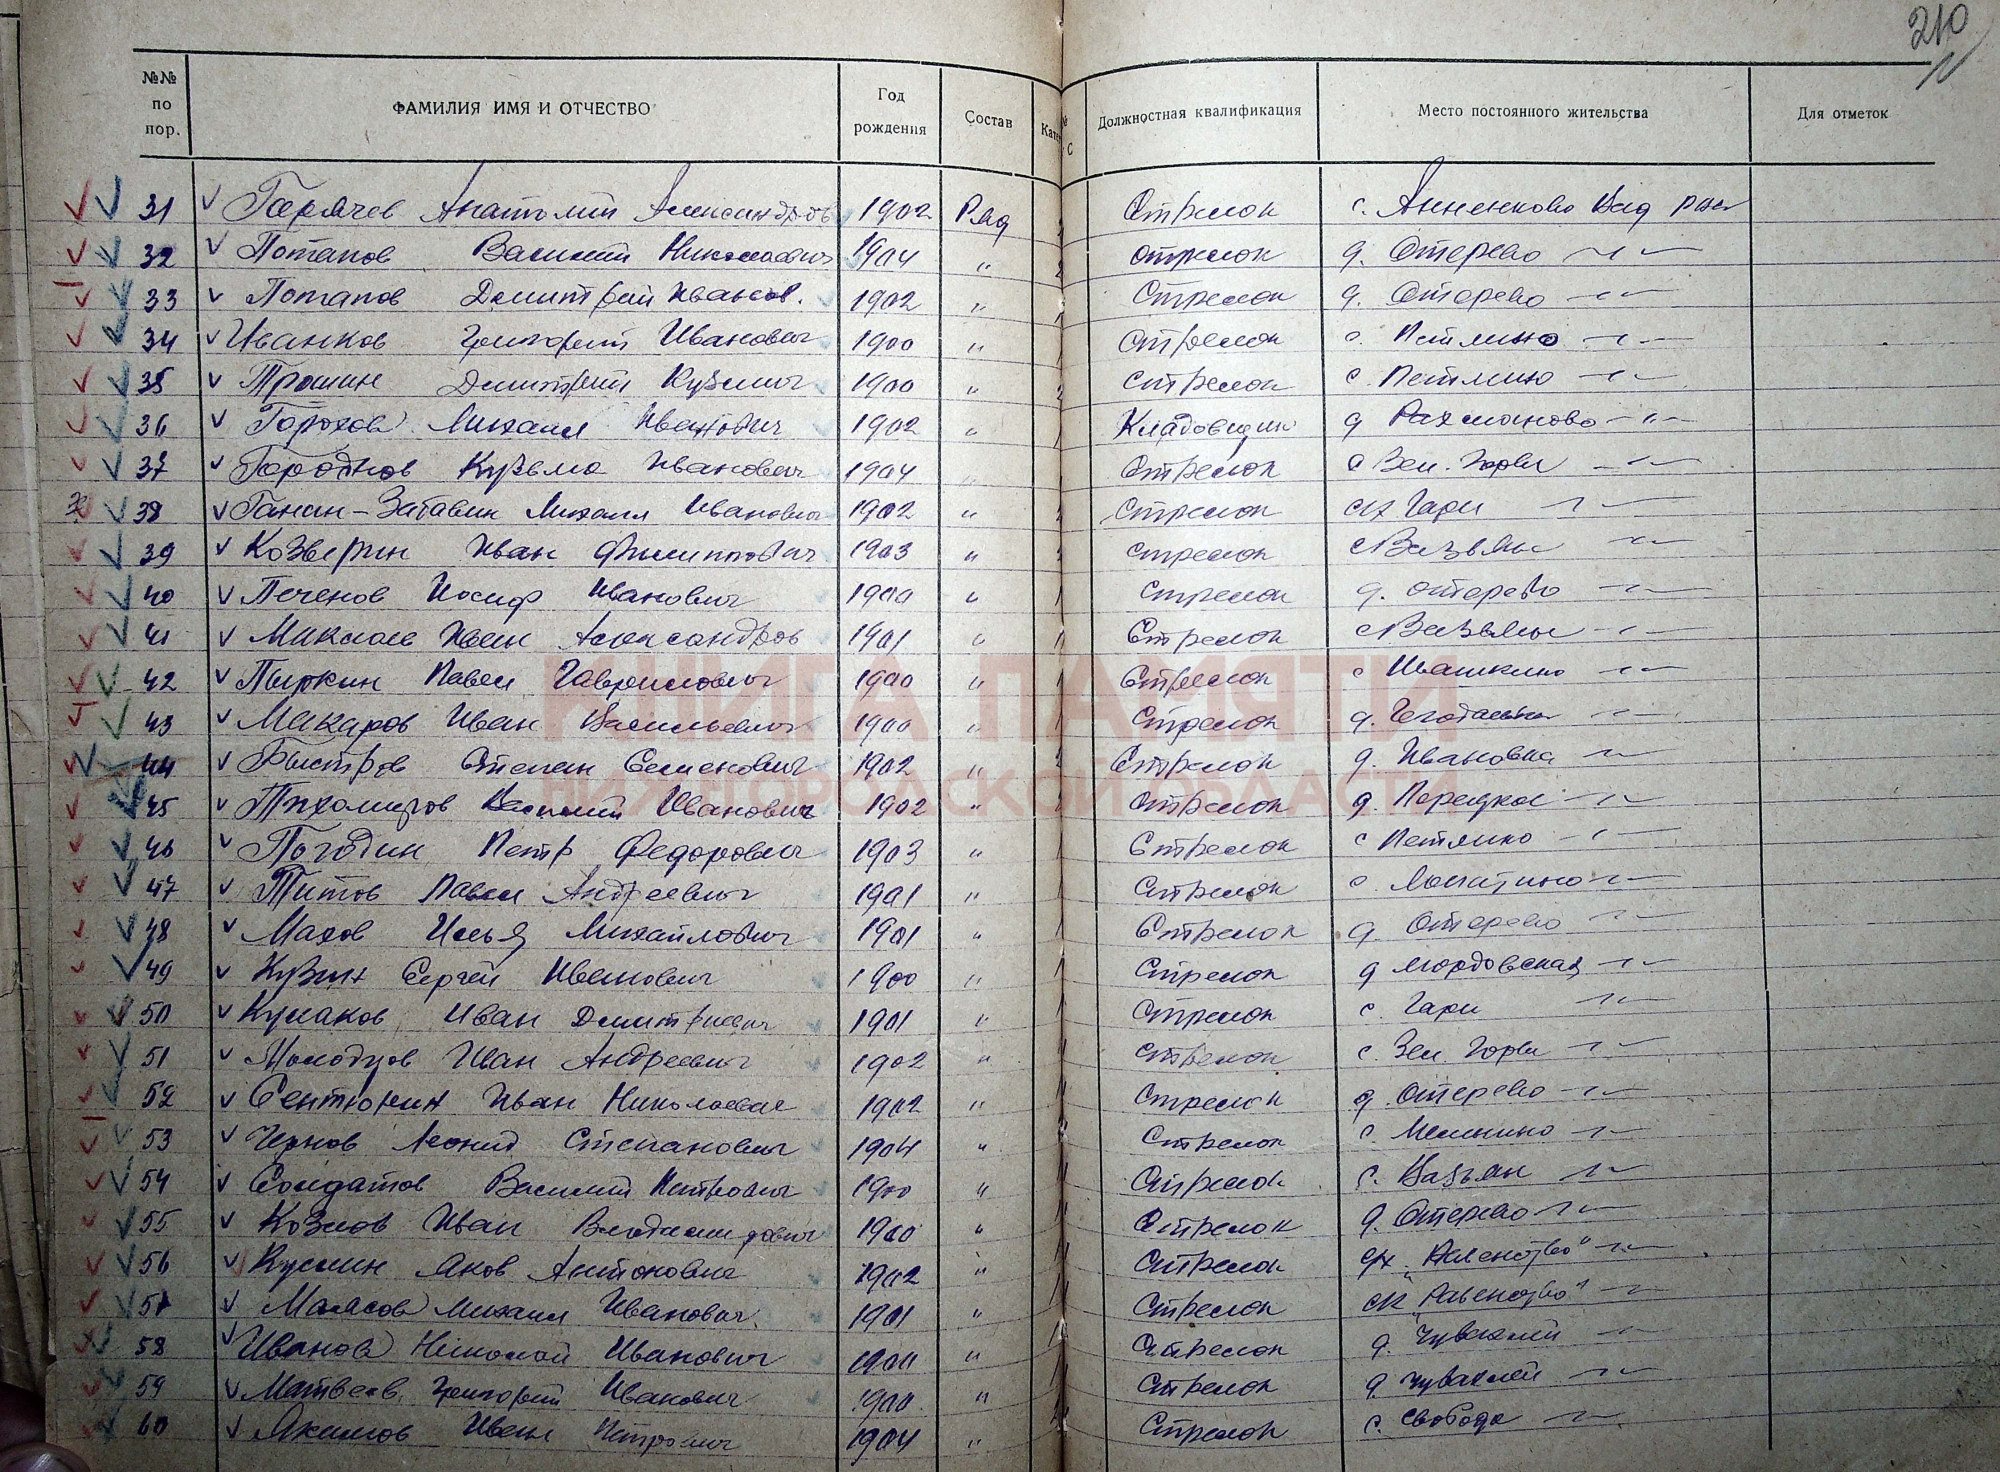 210
№№ по пор. ФАМИЛИЯ ИМЯ И ОТЧЕСТВО Год рождения Состав Должностная квалификация Место постоянного жительства Для отметок
31 Горячев Анатолий Александров 1902 Ряд Стрелок с. Анненково Вад рай
32 Потапов Василий Николаевич 1904 " Стрелок д. Отерево —"—
33 Потапов Дмитрий Иванов. 1902 " Стрелок д. Отерево —"—
34 Иванков Григорий Иванович 1900 " Стрелок с. Петлино —"—
35 Трошин Дмитрий Кузьмич 1900 " Стрелок с. Петлино —"—
36 Горохов Михаил Иванович 1902 " Кладовщик д Рахманово —"—
37 Городнов Кузьма Иванович 1904 " Стрелок с Зел. Горы —"—
38 Ганин-Забавин Михаил Иванович 1902 " Стрелок Гари —"—
39 Козверин Иван Филиппович 1903 " Стрелок —"—
40 Печенов Иосиф Иванович 1900 " Стрелок д. Отерево —"—
41 Иван Александров 1901 " Стрелок —"—
42 Пыркин Павел Гаврилович 1900 " Стрелок с Ивашкино —"—
43 Макаров Иван Васильевич 1900 " Стрелок д. —"—
44 Быстров Степан Семенович 1902 " Стрелок д. Ивановка —"—
45 Тихомиров Василий Иванович 1902 " Стрелок д. —"—
46 Погодин Петр Федорович 1903 " Стрелок с Петлино —"—
47 Титов Павел Андреевич 1901 " Стрелок с. Лопатино —"—
48 Махов Илья Михайлович 1901 " Стрелок д. Отерево —"—
49 Кузин Сергей Иванович 1900 " Стрелок д Мордовская —"—
50 Кулаков Иван Дмитриевич 1901 " Стрелок с. Гари —"—
51 Молодцов Иван Андреевич 1902 " Стрелок с. Зел. Горы —"—
52 Сентюрин Иван Николаевич 1902 " Стрелок д. Отерево —"—
53 Чернов Леонид Степанович 1904 " Стрелок с. —"—
54 Солдатов Василий Петрович 1900 " Стрелок с. —"—
55 Козлов Иван Владимирович 1900 " Стрелок д. Отерево —"—
56 Яков Антонович 1902 " Стрелок "Равенство" —"—
57 Михаил Иванович 1901 " Стрелок "Равенство" —"—
58 Иванов Николай Иванович 1900 " Стрелок д. Чувахлей —"—
59 Матвеев Григорий Иванович 1900 " Стрелок д. Чувахлей —"—
60 Акимов Иван Петрович 1904 " Стрелок с. Свобода —"—
КНИГА ПАМЯТИ
НИЖЕГОРОДСКОЙ ОБЛАСТИ